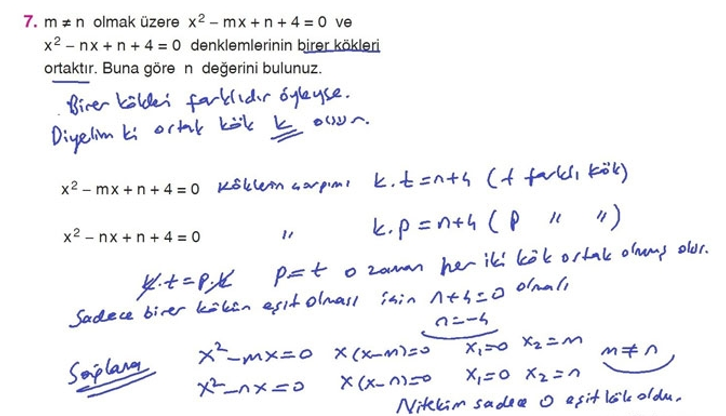 7. m ≠ n olmak üzere x² – mx + n + 4 = 0 ve
x² – nx + n + 4 = 0 denklemlerinin birer kökleri
ortaktır. Buna göre n değerini bulunuz.
Birer kökleri farklıdır öyleyse.
Diyelim ki ortak kök k olsun.
x² – mx + n + 4 = 0 köklerin çarpımı k.t = n+4 (t farklı kök)
x² – nx + n + 4 = 0 " k.p = n+4 (p " ")
k.t = p.k p = t o zaman her iki kök ortak olmuş olur.
Sadece birer kökün eşit olması için n+4=0 olmalı
n=-4
Sağlama x²-mx=0 x(x-m)=0 x₁=0 x₂=m m≠n
x²-nx=0 x(x-n)=0 x₁=0 x₂=n
Nitekim sadece 0 eşit kök oldu.